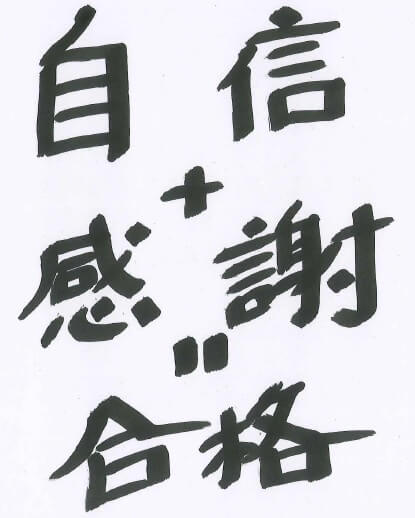 自信
+
感謝
=
合格